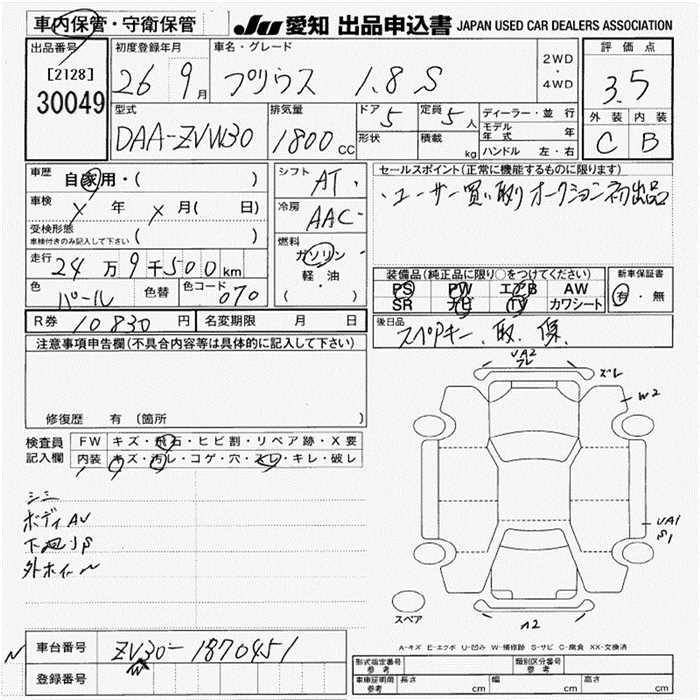 車内保管・守衛保管
JU 愛知 出品申込書 JAPAN USED CAR DEALERS ASSOCIATION
出品番号 初度登録年月 車名・グレード 評価点
[2128] 26 9月 プリウス 1.8 S 2WD・4WD 3.5
30049
型式 排気量 ドア 5 定員 5人 ディーラー・並行 外装 内装
DAA-ZVW30 1800cc 形状 積載 kg モデル年式 年 C B
ハンドル 左・右
車歴 自家用・( ) シフト AT セールスポイント(正常に機能するものに限ります)
車検 年 月( 日) 冷房 AAC ・ユーザー買い取りオークション初出品
受検形態 車検付きのみ記入して下さい ( )
燃料 ガソリン・軽・油 ( )
走行 24万9千500km
装備品(純正品に限り○をつけてください) 新車保証書
PS PW エアB AW 有・無
SR ナビ TV カワシート
色 パール 色替 色コード 070
後日品
R券 10830円 名変期限 月 日 スペアキー、取、保
注意事項申告欄(不具合内容等は具体的に記入して下さい)
修復歴 有 〔箇所 〕
検査員記入欄 FW キズ・飛石・ヒビ割・リペア跡・X要
内装 キズ・汚レ・コゲ・穴・スレ・キレ・破レ
シミ
ボディAU
下廻りS
外ホイール
ズレ
W2
UA1
S1
A2
スペア
A-キズ E-エクボ U-凹み W-補修跡 S-サビ C-腐食 XX-交換済
車台番号 ZVW30-1870451
登録番号
形式指定番号 参考 類別区分番号 参考
車庫証明用 参考 長さ cm 幅 cm 高さ cm